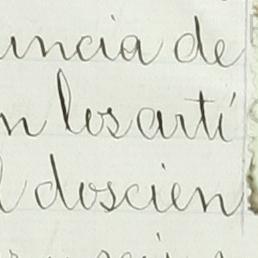 uncia de
n los artí
l doscien